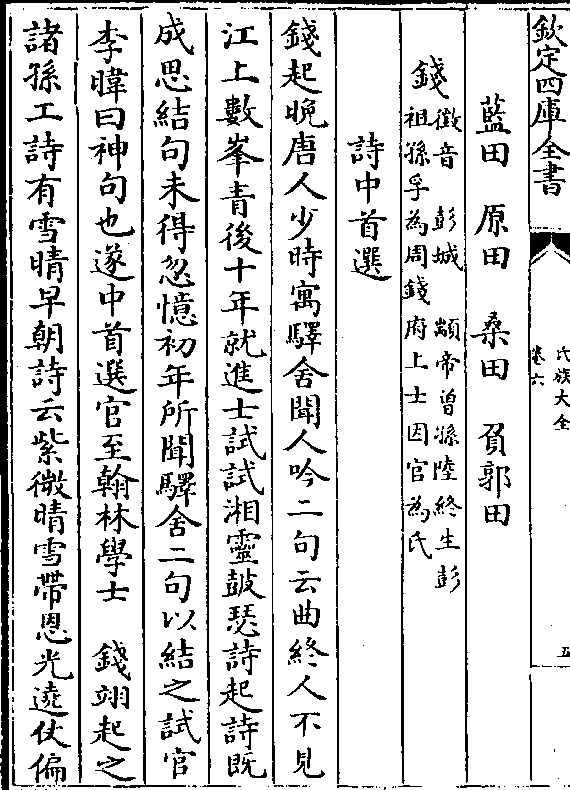 欽定四庫全書
氏族大全
卷六
五
藍田　原田　桑田　負郭田
錢
徵音　彭城　顓帝曾孫陸終生彭
祖孫孚為周錢府上士因官為氏
詩中首選
錢起晚唐人少時寓驛舍聞人吟二句云曲終人不見
江上數峯青後十年就進士試試湘靈鼓瑟詩起詩既
成思結句未得忽憶初年所聞驛舍二句以結之試官
李暐曰神句也遂中首選官至翰林學士　錢翊起之
諸孫工詩有雪晴早朝詩云紫微晴雪帶恩光遶仗偏